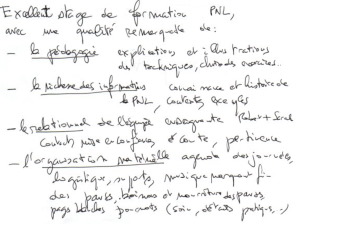 Excellent stage de formation PNL,
avec une qualité remarquable de :
- la pédagogie explications et illustrations
des techniques, choix des exercices..
- la richesse des informations connaissance et histoire de
la PNL, contexte, exemples
- le relationnel de l'équipe enseignante Robert +
contacts, mise en confiance, écoute, pertinence
- l'organisation matérielle agenda des journées,
logistique, supports, musique marquant fin
des pauses, boissons et nourriture des pauses,
des formats (soin, détails pratiques, ..)